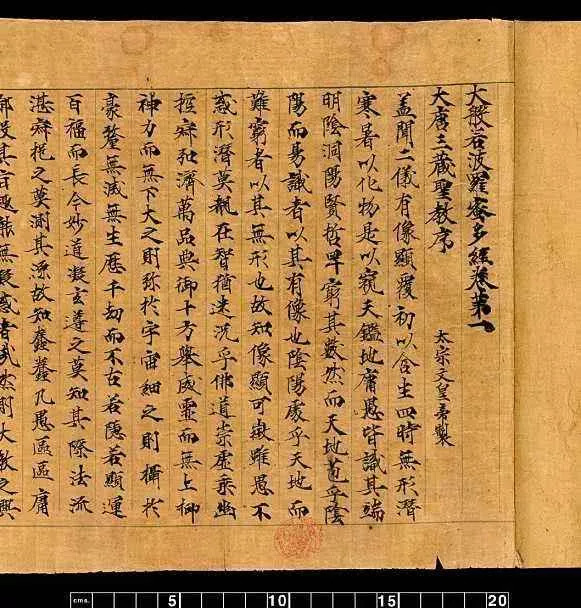 大般若波羅蜜多經卷第一
大唐三藏聖教序 太宗文皇帝製
盖聞二儀有像顯覆初以含生四時無形潛
寒暑以化物是以窺天鑑地庸愚皆識其端
明陰洞陽賢哲罕窮其數然而天地苞乎陰
陽而易識者以其有像也陰陽處乎天地而
難窮者以其無形也故知像顯可徵雖愚不
惑形潛莫覩在智猶迷況乎佛道崇虛乘幽
控寂弘濟萬品典御十方舉威靈而無上抑
神力而無下大之則弥於宇宙細之則攝於
豪釐無滅無生歷千劫而不古若隱若顯運
百福而長今妙道凝玄遵之莫知其際法流
湛寂挹之莫測其源故知蠢蠢凡愚區區庸
鄙投其旨趣能無疑惑者哉然則大教之興
cms. 5 10 15 20